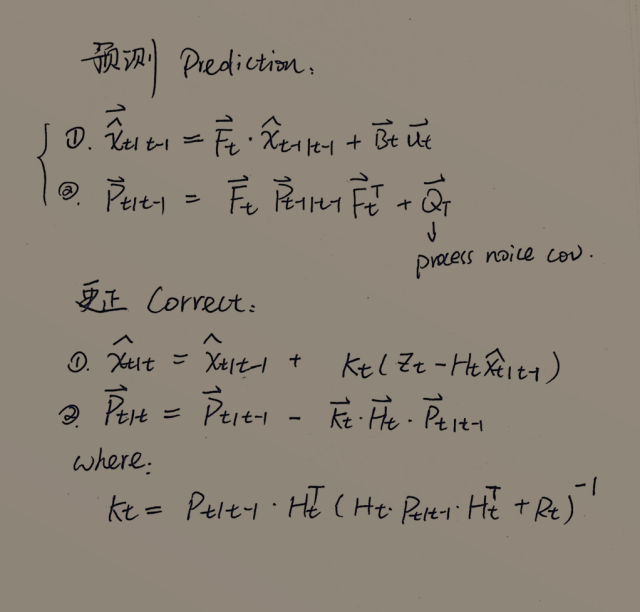 预测 Prediction:
①. x̂⃗ₜ|ₜ₋₁ = F⃗ₜ · x̂ₜ₋₁|ₜ₋₁ + B⃗ₜ u⃗ₜ
②. P⃗ₜ|ₜ₋₁ = F⃗ₜ P⃗ₜ₋₁|ₜ₋₁ F⃗ₜᵀ + Q⃗_T
↓
process noice cov.
更正 Correct:
①. x̂ₜ|ₜ = x̂ₜ|ₜ₋₁ + Kₜ(Zₜ - Hₜx̂ₜ|ₜ₋₁)
②. P⃗ₜ|ₜ = P⃗ₜ|ₜ₋₁ - K⃗ₜ · H⃗ₜ · P⃗ₜ|ₜ₋₁
where:
Kₜ = Pₜ|ₜ₋₁ · Hₜᵀ (Hₜ · Pₜ|ₜ₋₁ · Hₜᵀ + Rₜ)⁻¹